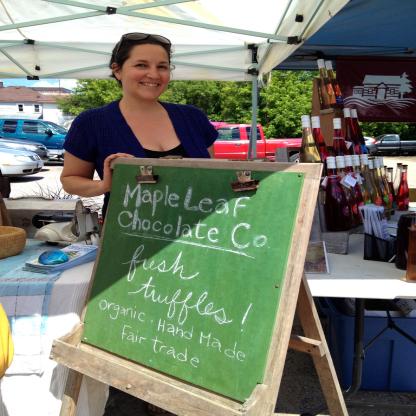 Maple Leaf
Chocolate Co.
fresh
truffles!
Organic · Hand Made
Fair trade